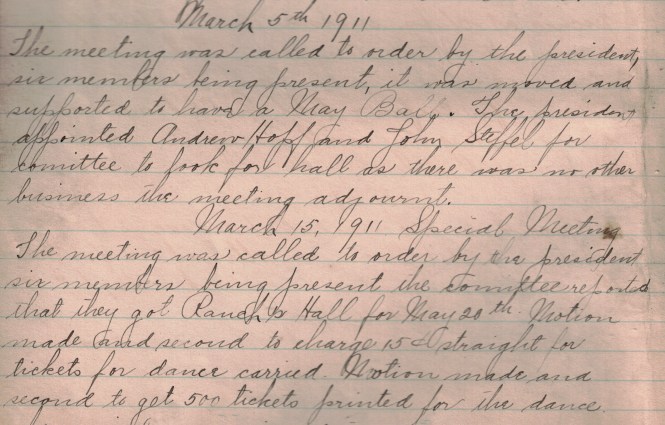 March 5th 1911
The meeting was called to order by the president,
six members being present, it was moved and
supported to have a May Ball. The president
appointed Andrew Hopf and John Steffel for
comittee to look for hall as there was no other
business the meeting adjournt.
March 15, 1911 Special Meeting
The meeting was called to order by the president
six members being present the committee reported
that they got Hall for May 20th. Motion
made and second to charge 15¢ straight for
tickets for dance carried. Motion made and
second to get 500 tickets printed for the dance.